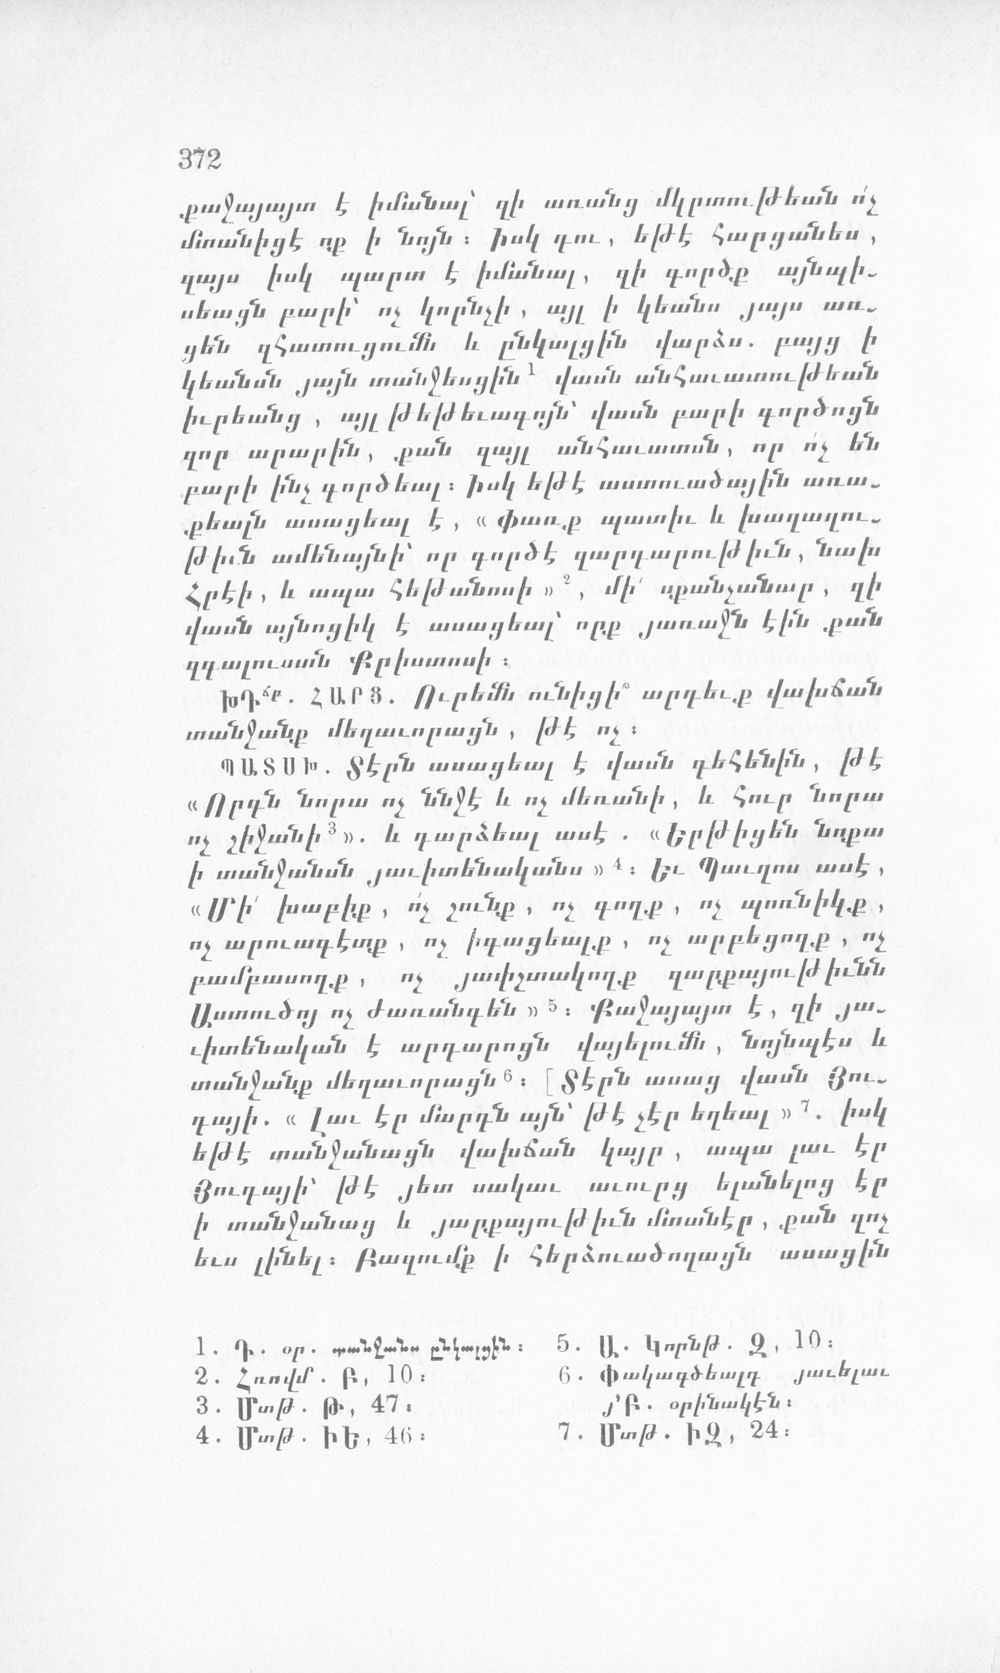 372
քաջայայտ է իմանալ՝ զի առանց մկրտութեան ո՛չ
մտանիցէ ոք ի նոյն ։ Իսկ դու , եթէ հարցանես ,
զայս իսկ պարտ է իմանալ , զի գործք այնպի-
սեացն բարի՝ ոչ կորնչի , այլ ի կեանս յայս առ-
ցեն զհատուցումն և ընկալցին վարձս . բայց ի
կեանսն յայն տանջեսցին 1 վասն անհաւատութեան
իւրեանց , այլ թեթեւագոյն՝ վասն բարի գործոցն
զոր արարին , քան զայլ անհաւատսն , որ ո՛չ են
բարի ինչ գործեալ ։ Իսկ եթէ աստուածային առա-
քեալն ասացեալ է , « Փառք պատիւ և խաղաղու-
թիւն ամենայնի՝ որ գործէ զարդարութիւն , նախ
Հրէի , և ապա հեթանոսի » 2 , մի՛ սքանչանար , զի
վասն այնոցիկ է ասացեալ՝ որք յառաջն էին քան
զգալուստն Քրիստոսի ։
ԽԴ՟երրդ . ՀԱՐՑ . Ուրեմն ունիցի՞ արդեւք վախճան
տանջանք մեղաւորացն , թէ ոչ ։
ՊԱՏՍԽ . Տէրն ասացեալ է վասն գեհենին , թէ
« Որդն նորա ոչ ննջէ և ոչ մեռանի , և հուր նորա
ոչ շիջանի 3 » . և դարձեալ ասէ . « Երթիցեն նոքա
ի տանջանսն յաւիտենականս » 4 ։ Եւ Պաւղոս ասէ ,
« Մի՛ խաբիք , ո՛չ շունք , ոչ գողք , ոչ պոռնիկք ,
ոչ արուագէտք , ոչ իգացեալք , ոչ արբեցողք , ոչ
բամբասողք , ոչ յափշտակողք զարքայութիւնն
Աստուծոյ ոչ ժառանգեն » 5 ։ Քաջայայտ է , զի յա-
ւիտենական է արդարոցն վայելումն , նոյնպէս և
տանջանք մեղաւորացն 6 ։ [ Տէրն ասաց վասն Յու-
դայի . « Լաւ էր մարդն այն՝ թէ չէր եղեալ » 7 . իսկ
եթէ տանջանացն վախճան կայր , ապա լաւ էր
Յուդայի՝ թէ յետ սակաւ աւուրց ելանելոց էր
ի տանջանաց և յարքայութիւն մտանէր , քան զոչ
եւս լինել ։ Բազումք ի հերձուածողացն ասացին
1. Դ . օր . տանջանս ընկալցին ։
2. Հռովմ . Բ , 10 ։
3. Մտթ . Թ , 47 ։
4. Մտթ . ԻԵ , 46 ։
5. Ա . Կորնթ . Զ , 10 ։
6. Փակագծեալդ յաւելաւ
յ՚Բ . օրինակէն ։
7. Մտթ . ԻԶ , 24 ։